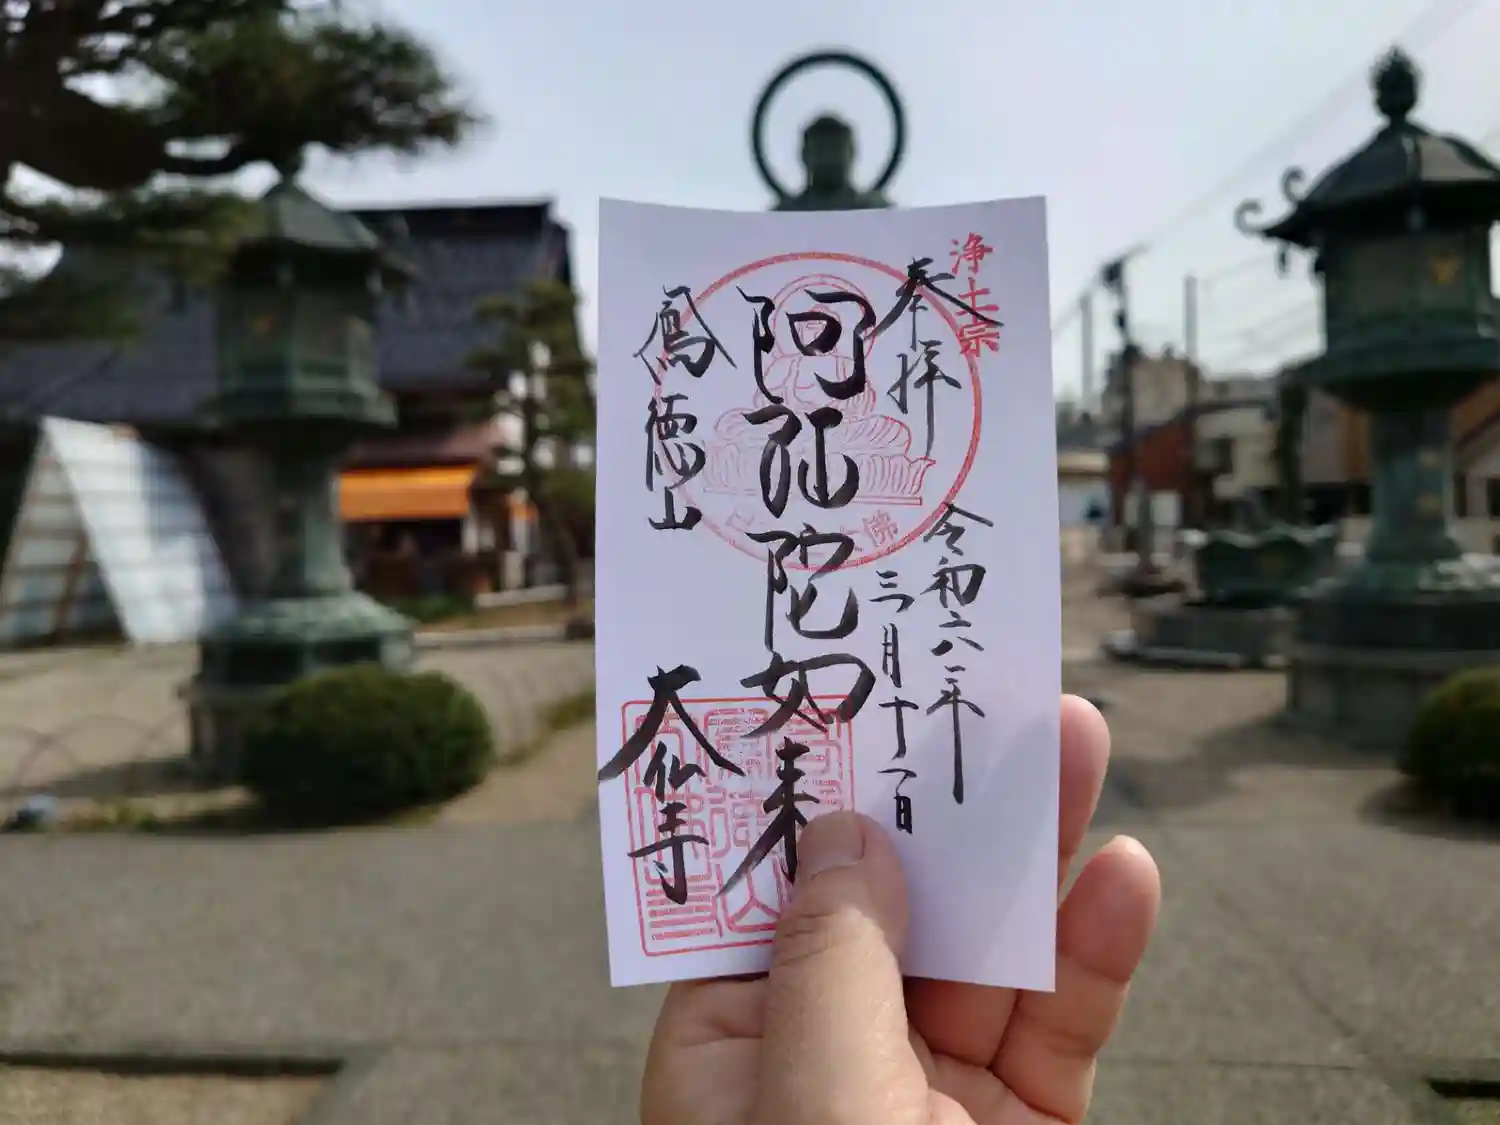 浄土宗
奉拝
令和六年
三月十一日
阿弥陀如来
鳳徳山
大仏寺
大佛